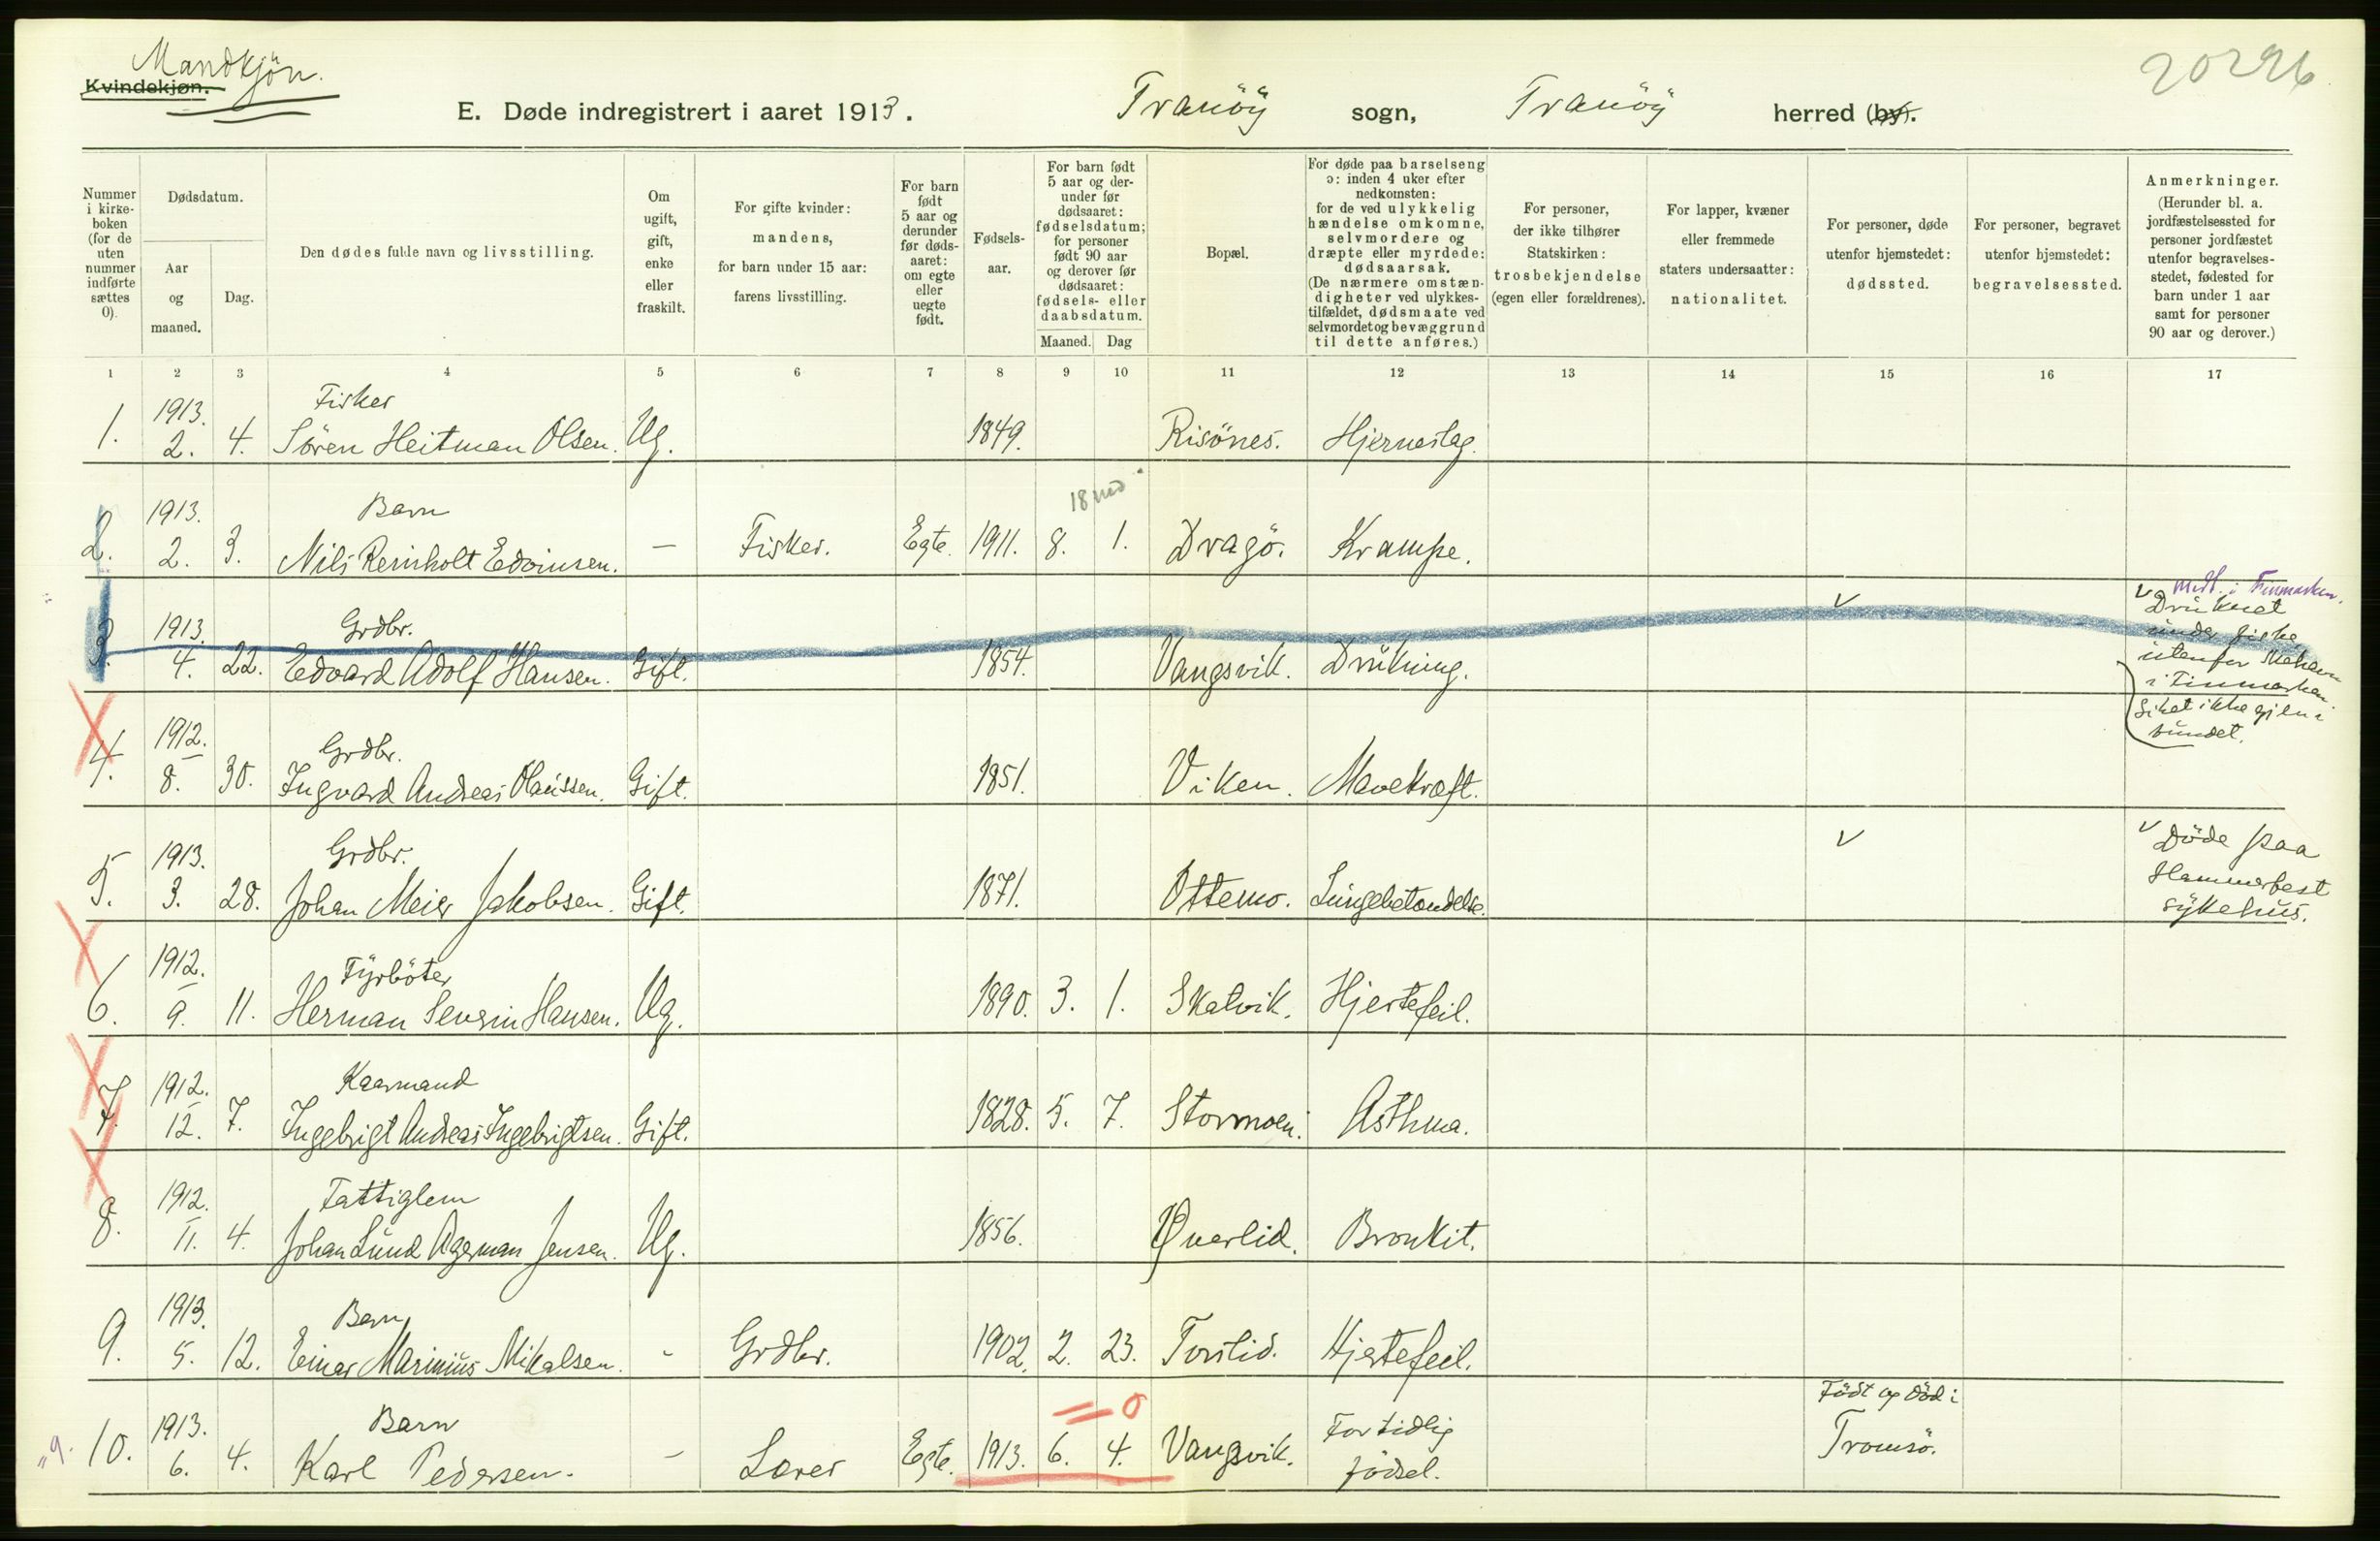 Mandkjøn.
Kvindekjøn.
20296
E. Døde indregistrert i aaret 1913. Tranöy sogn, Tranöy herred (by).
Nummer i kirke-boken (for de uten nummer indførte sættes 0).
Dødsdatum.
Aar og maaned.
Dag.
Den dødes fulde navn og livsstilling.
Om ugift, gift, enke eller fraskilt.
For gifte kvinder: mandens, for barn under 15 aar: farens livsstilling.
For barn født 5 aar og derunder før døds-aaret: om egte eller uegte født.
Fødsels-aar.
For barn født 5 aar og der-under før dødsaaret: fødselsdatum; for personer født 90 aar og derover før dødsaaret: fødsels- eller daabsdatum.
Maaned.
Dag
Bopæl.
For døde paa barselseng ɔ: inden 4 uker efter nedkomsten: for de ved ulykkelig hændelse omkomne, selvmordere og dræpte eller myrdede: dødsaarsak. (De nærmere omstæn-digheter ved ulykkes-tilfældet, dødsmaate ved selvmordet og bevæggrund til dette anføres.)
For personer, der ikke tilhører Statskirken: trosbekjendelse (egen eller forældrenes).
For lapper, kvæner eller fremmede staters undersaatter: nationalitet.
For personer, døde utenfor hjemstedet: dødssted.
For personer, begravet utenfor hjemstedet: begravelsessted.
Anmerkninger. (Herunder bl. a. jordfæstelsessted for personer jordfæstet utenfor begravelses-stedet, fødested for barn under 1 aar samt for personer 90 aar og derover.)
1 2 3 4 5 6 7 8 9 10 11 12 13 14 15 16 17
Fisker
1. 1913. 2. 4. Sören Heitman Olsen. Ug. 1849. Risönes. Hjerneslag.
18 md
Barn
2. 1913. 2. 3. Nils Reinholt Edvinsen. — Fisker. Egte. 1911. 8. 1. Dragö. Krampe.
Grdbr.
3. 1913. 4. 22. Edvard Adolf Hansen. Gift. 1854. Vangsvik. Drukning. v
v medt. i Finmarken.
Druknet
under fiske
utenfor Mehavn
i Finmarken.
Liket ikke gjen-
fundet.
Grdbr.
4. 1912. 8. 30. Ingvard Andreas Olaussen. Gift. 1851. Viken. Mavekræft.
Grdbr.
5. 1913. 3. 28. Johan Meier Jakobsen. Gift. 1871. Ottemo. Lungebetændelse. v
v Döde paa
Hammerfest
sykehus.
Fyrböter
6. 1912. 9. 11. Herman Severin Hansen. Ug. 1890. 3. 1. Skatvik. Hjertefeil.
Kaarmand
7. 1912. 12. 7. Ingebrigt Andreas Ingebrigtsen. Gift. 1828. 5. 7. Stormoen. Asthma.
Fattiglem
8. 1912. 11. 4. Johan Lund Agerman Jensen. Ug. 1856. Øverlid. Bronkit.
Barn
9. 1913. 5. 12. Einar Marinius Mikalsen. - Grdbr. 1902. 2. 23. Torslid. Hjertefeil.
= 0
Barn
„9. 10. 1913. 6. 4. Karl Pedersen. - Lærer Egte. 1913. 6. 4. Vangsvik. For tidlig
födsel.
Födt og död i
Tromsö.